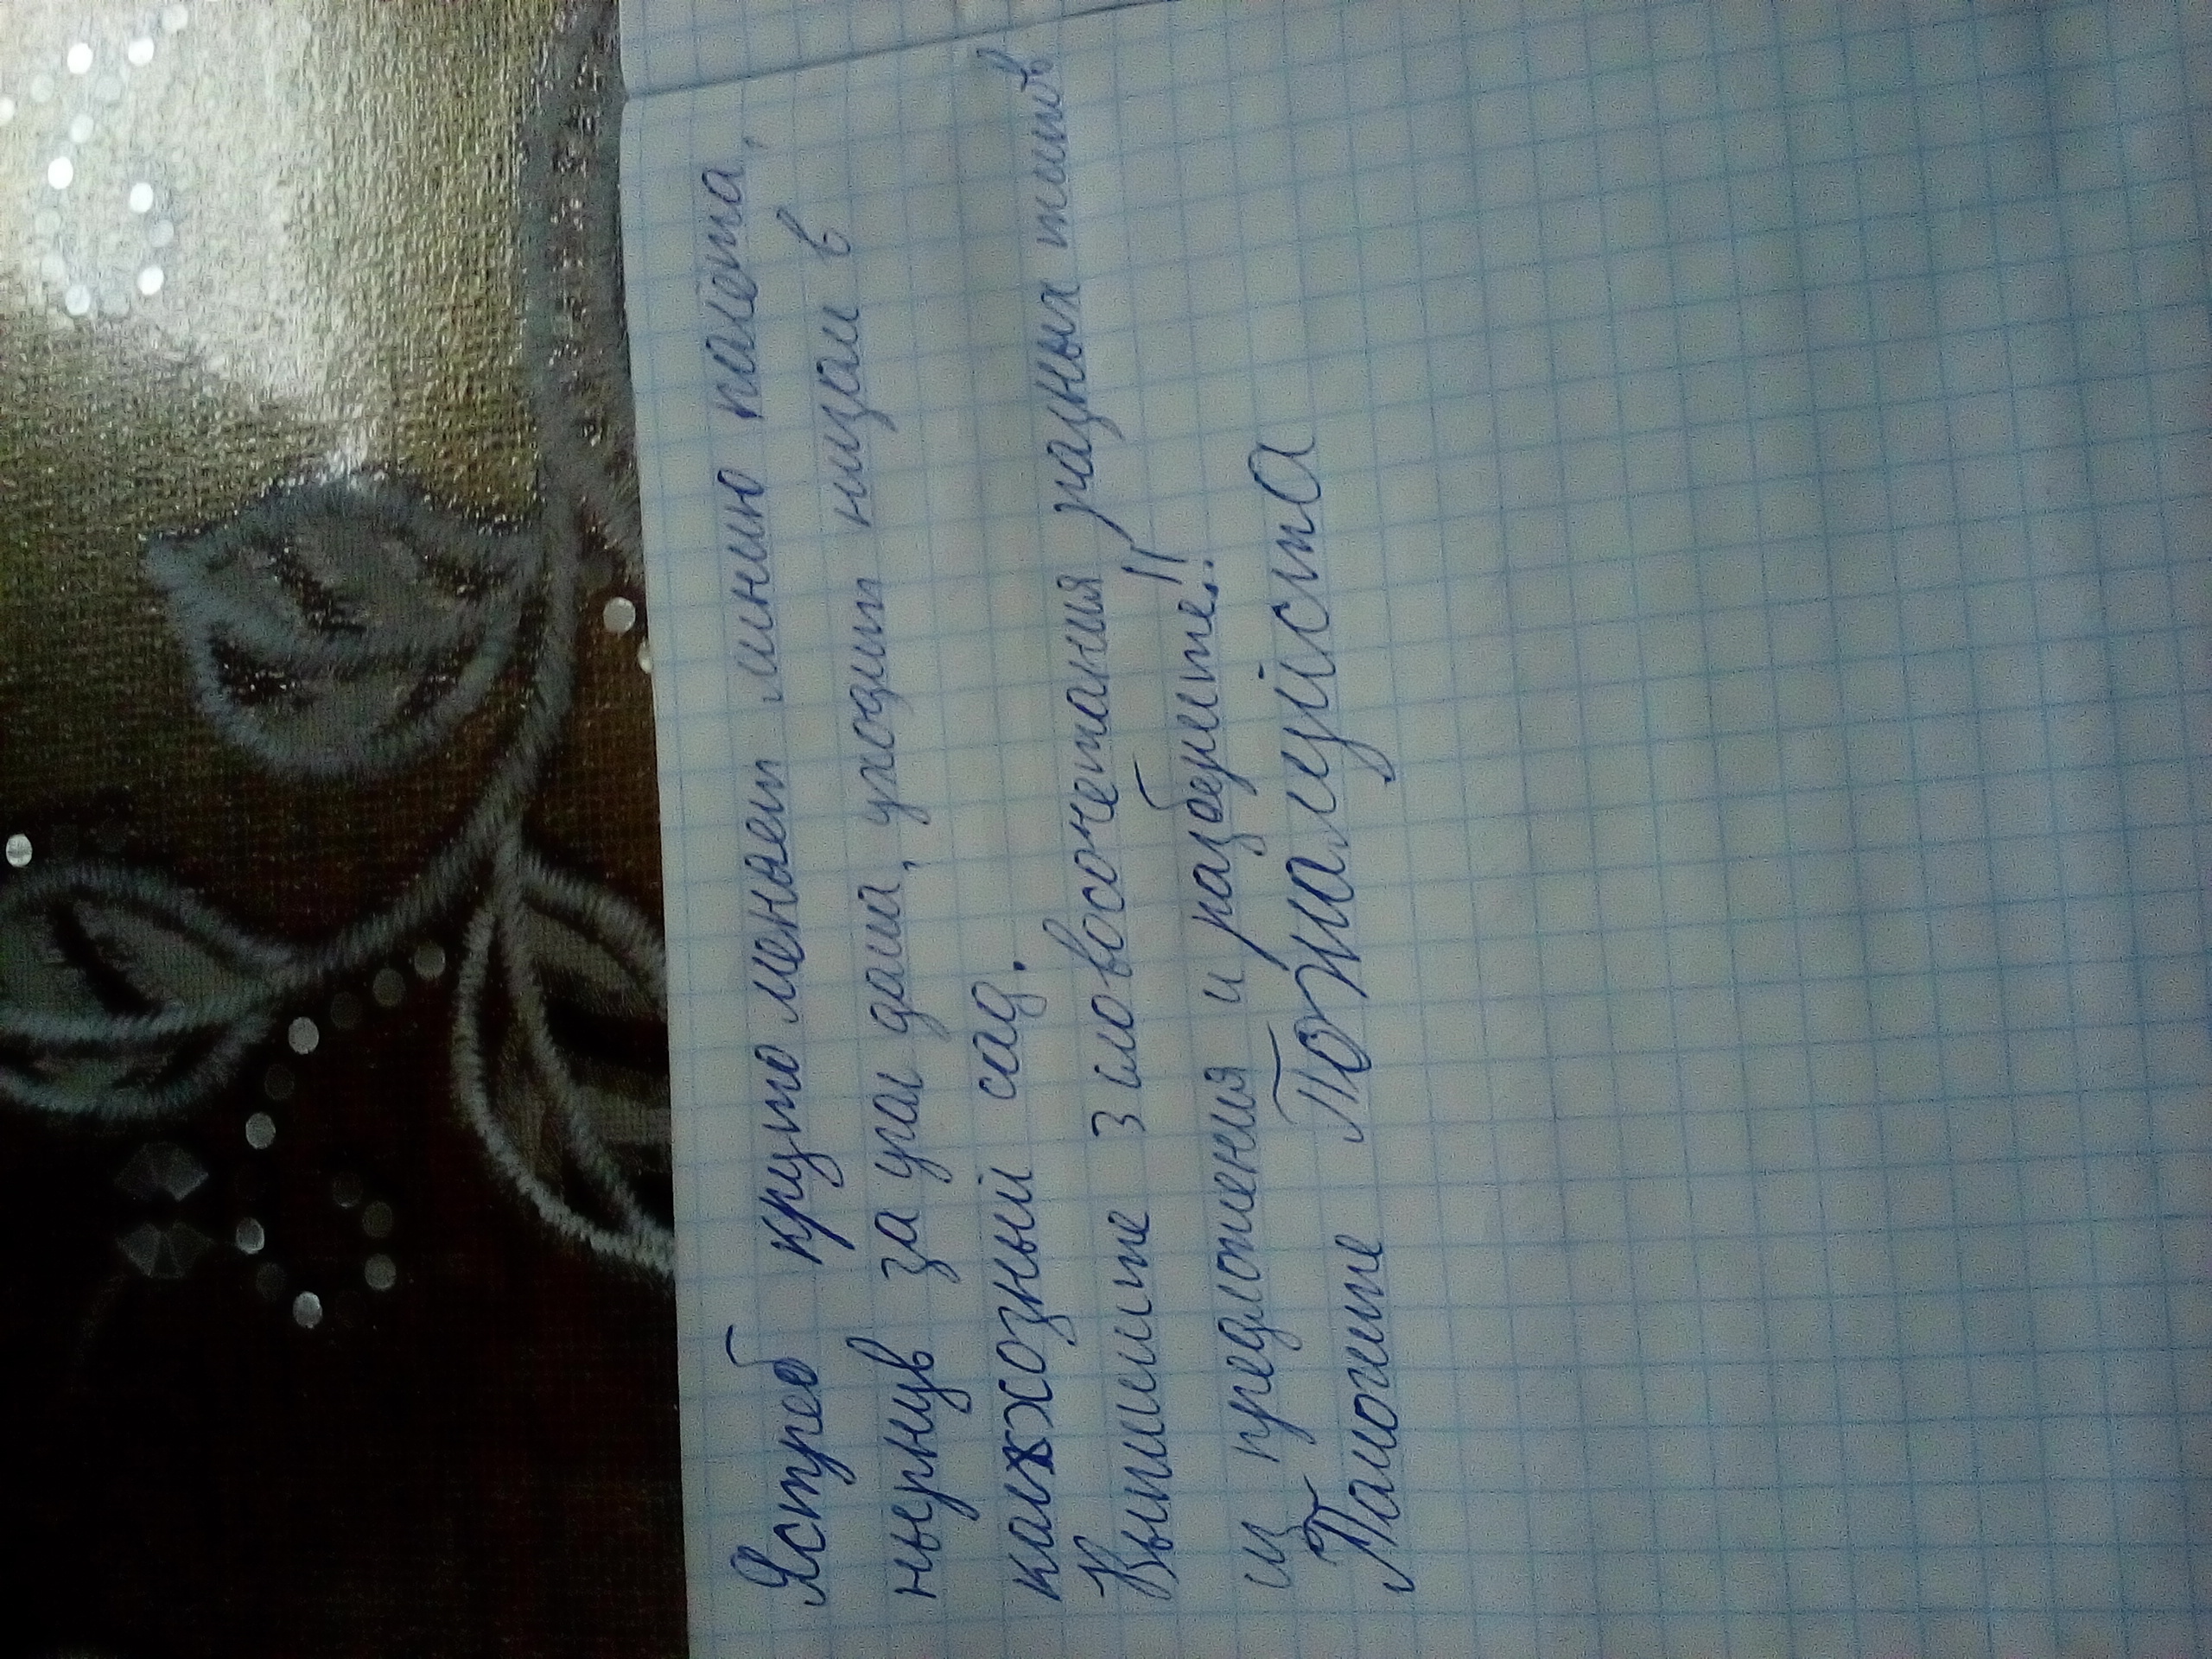 Ястреб круто меняет линию полета,
нырнув за угол дома, уходит низом в
колхозный сад.
Выпишите 3 словосочетания разных типов
из предложения и разберите!!
Помогите Пожалуйста